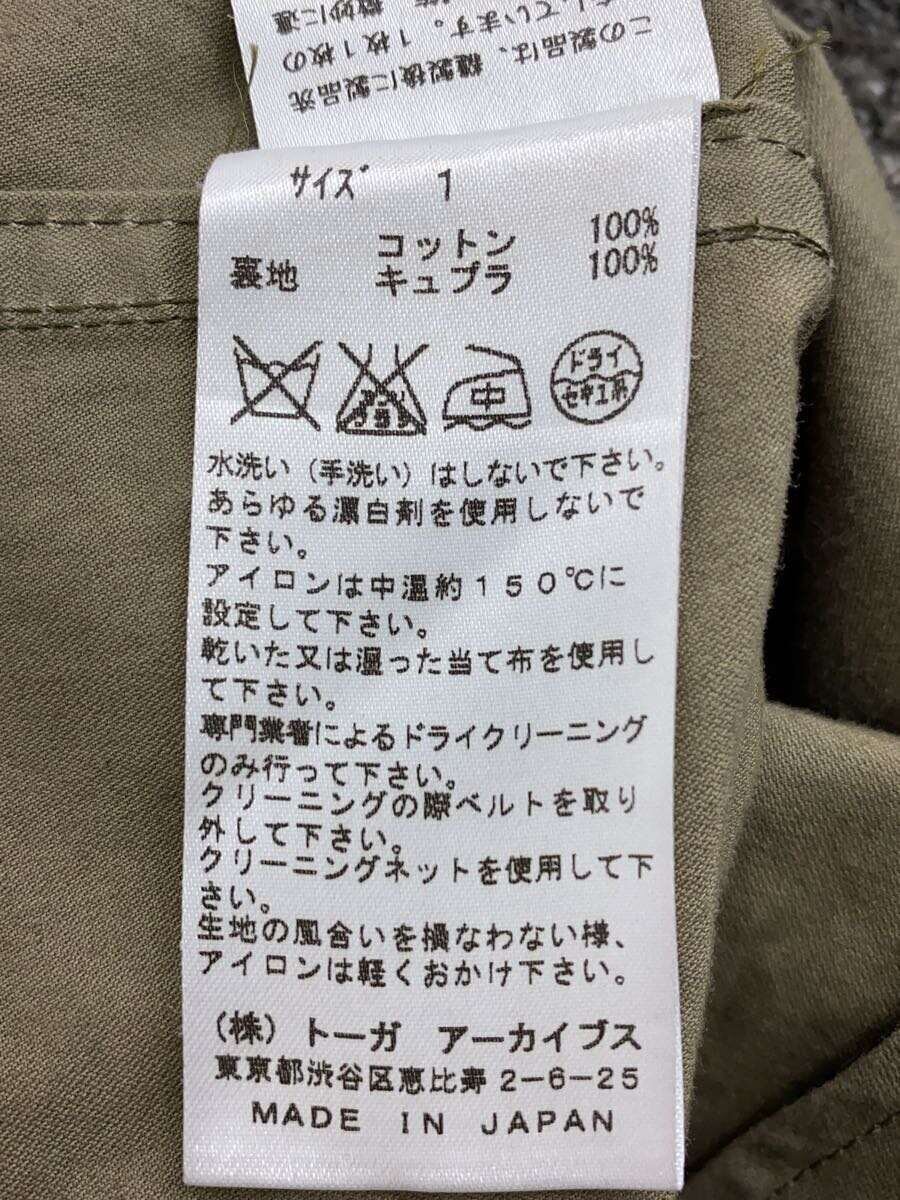 この製品は、縫製後に製品洗
しています。1枚1枚の
微妙に違
サイズ 1
コットン 100%
裏地 キュプラ 100%
中
ドライ
セキユ系
水洗い（手洗い）はしないで下さい。
あらゆる漂白剤を使用しないで
下さい。
アイロンは中温約150℃に
設定して下さい。
乾いた又は湿った当て布を使用し
て下さい。
専門業者によるドライクリーニング
のみ行って下さい。
クリーニングの際ベルトを取り
外して下さい。
クリーニングネットを使用して下
さい。
生地の風合いを損なわない様、
アイロンは軽くおかけ下さい。
（株）トーガ アーカイブス
東京都渋谷区恵比寿2-6-25
MADE IN JAPAN